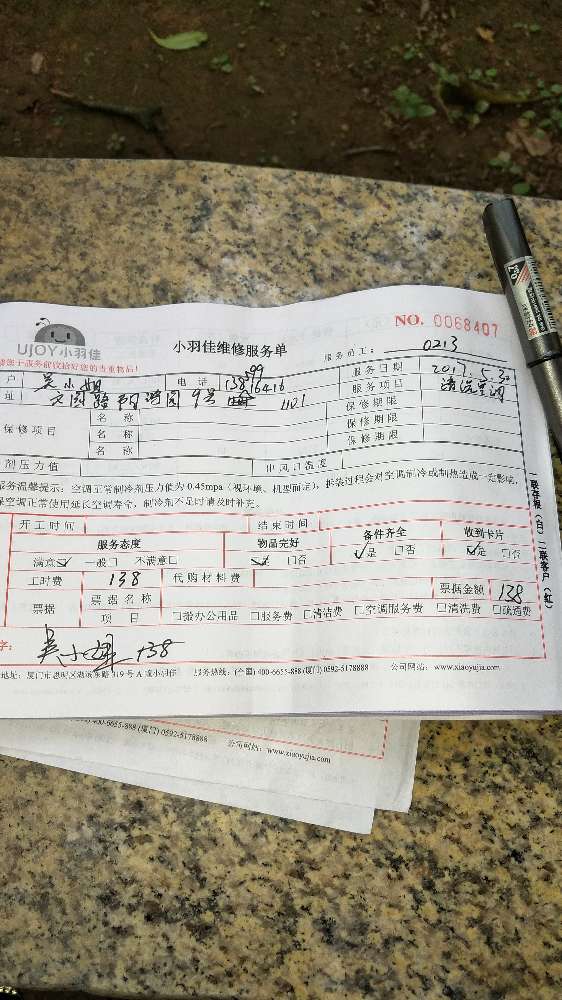 NO. 0068407
UJOY小羽佳
小羽佳维修服务单
服务员工： 0213
户 吴小姐 电话 服务日期 2017.5.30
服务项目 清洗空调
址 文园路 9号 1101 保修期限
保修项目 名称 保修期限
名称 保修期限
名称
剂压力值 出风口温度
服务温馨提示：空调正常制冷剂压力值为0.45mpa（视环境、机型而定），拆装过程会对空调制冷或制热造成一定影响，
保空调正常使用延长空调寿命，制冷剂不足时请及时补充。
开工时间 结束时间
服务态度 物品完好 备件齐全 收到卡片
满意☑ 一般□ 不满意□ ☑是 □否 ☑是 □否 ☑是 □否
工时费 138 代购材料费 票据金额 138
票据 票据名称
项目 □搬办公用品 □服务费 □清洁费 □空调服务费 □清洗费 □疏通费
字： 138
地址：厦门市思明区湖滨东路319号A 服务热线：(全国) 400-6655-888 (厦门) 0592-5178888 公司网站：www.xiaoyujia.com
一联存根（白）二联客户（红）
400-6655-888 (厦门) 0592-5178888 公司网站：www.xiaoyujia.com